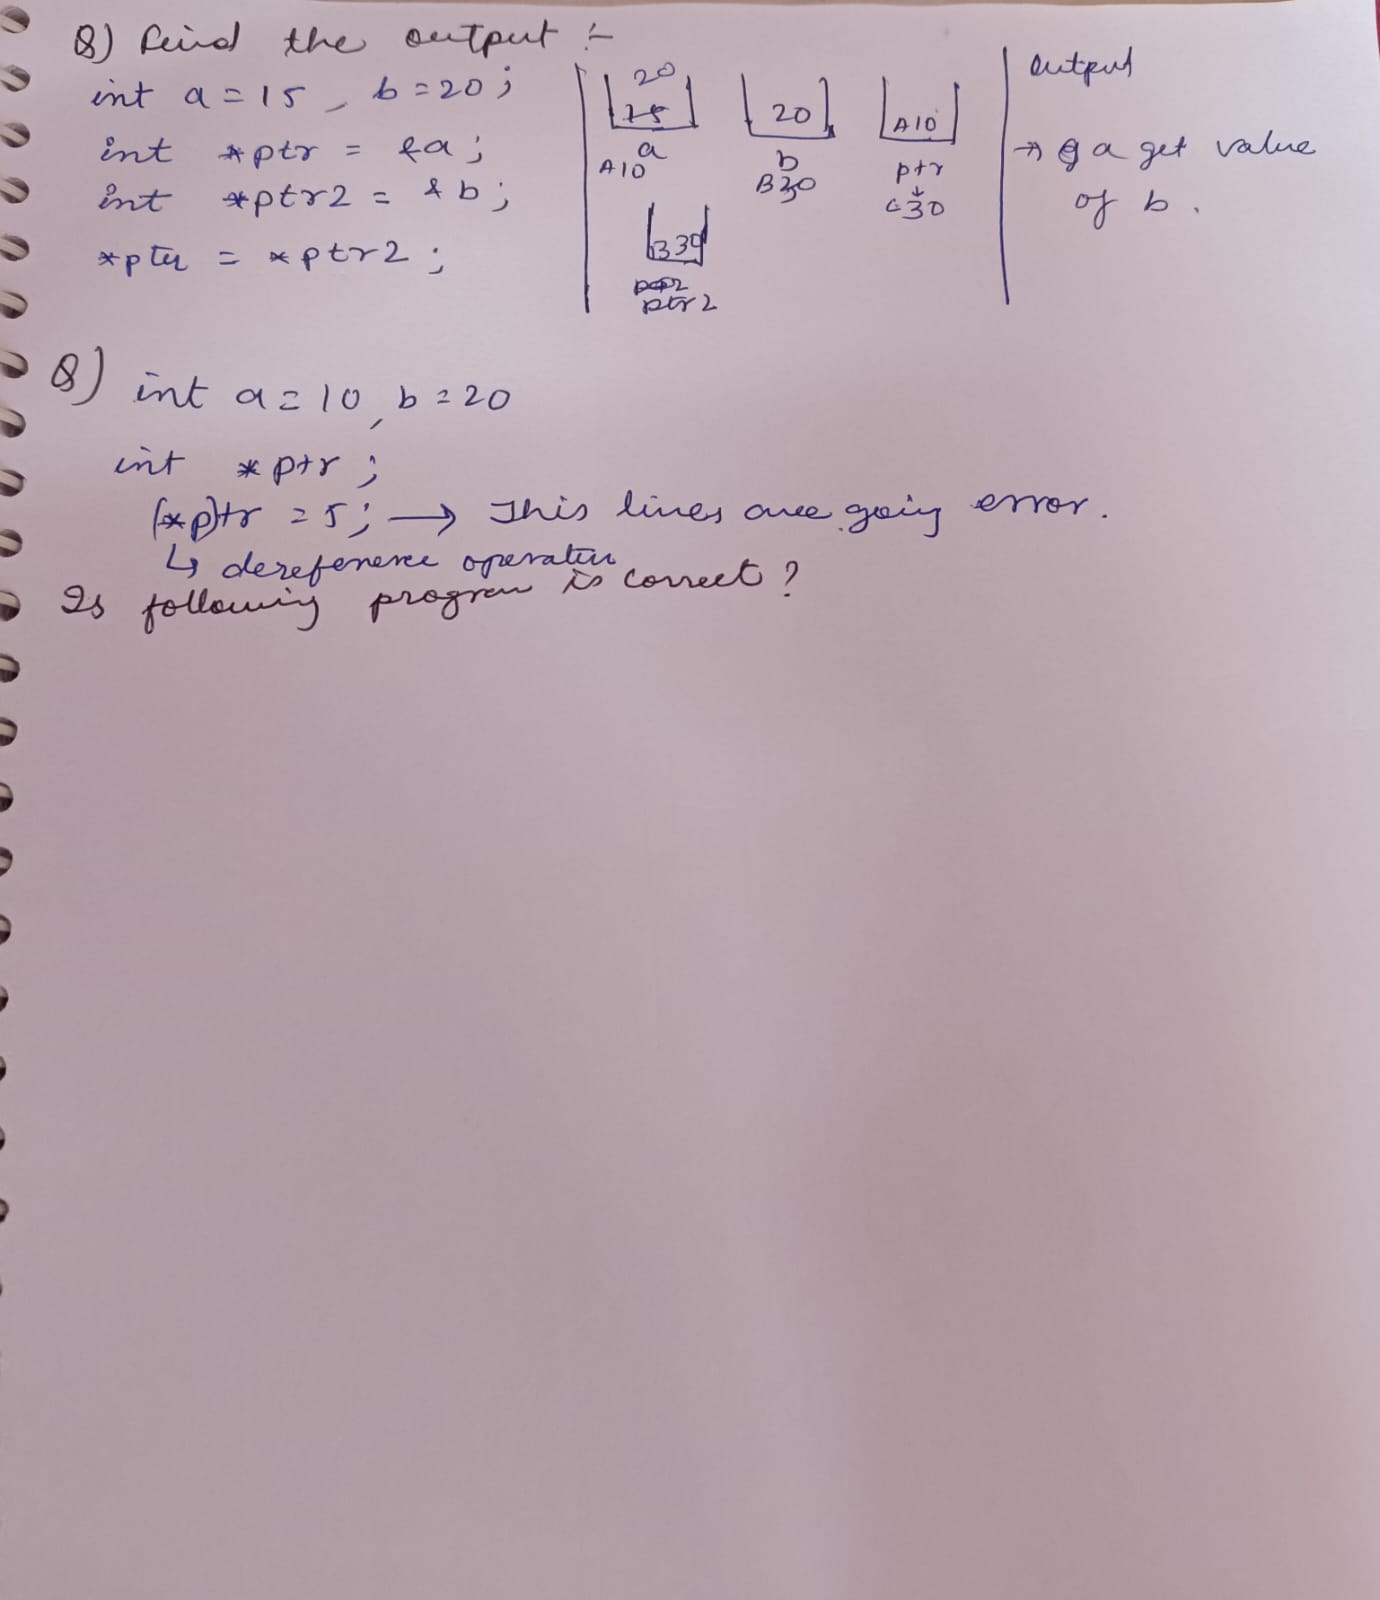 Q) Find the output :-
int a = 15, b = 20;
int *ptr = &a;
int *ptr2 = &b;
*ptr = *ptr2;
20
15
a
A10
20
b
B30
A10
ptr
C30
B30
ptr2
output
→ a get value
of b.
Q) int a = 10, b = 20
int *ptr;
(*p)tr = 5; → This lines are going error.
↳ dereference operator
Is following program is correct?